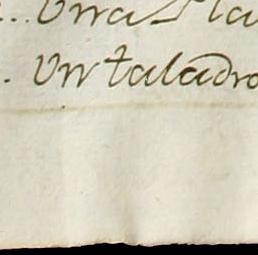 Una
Un taladro